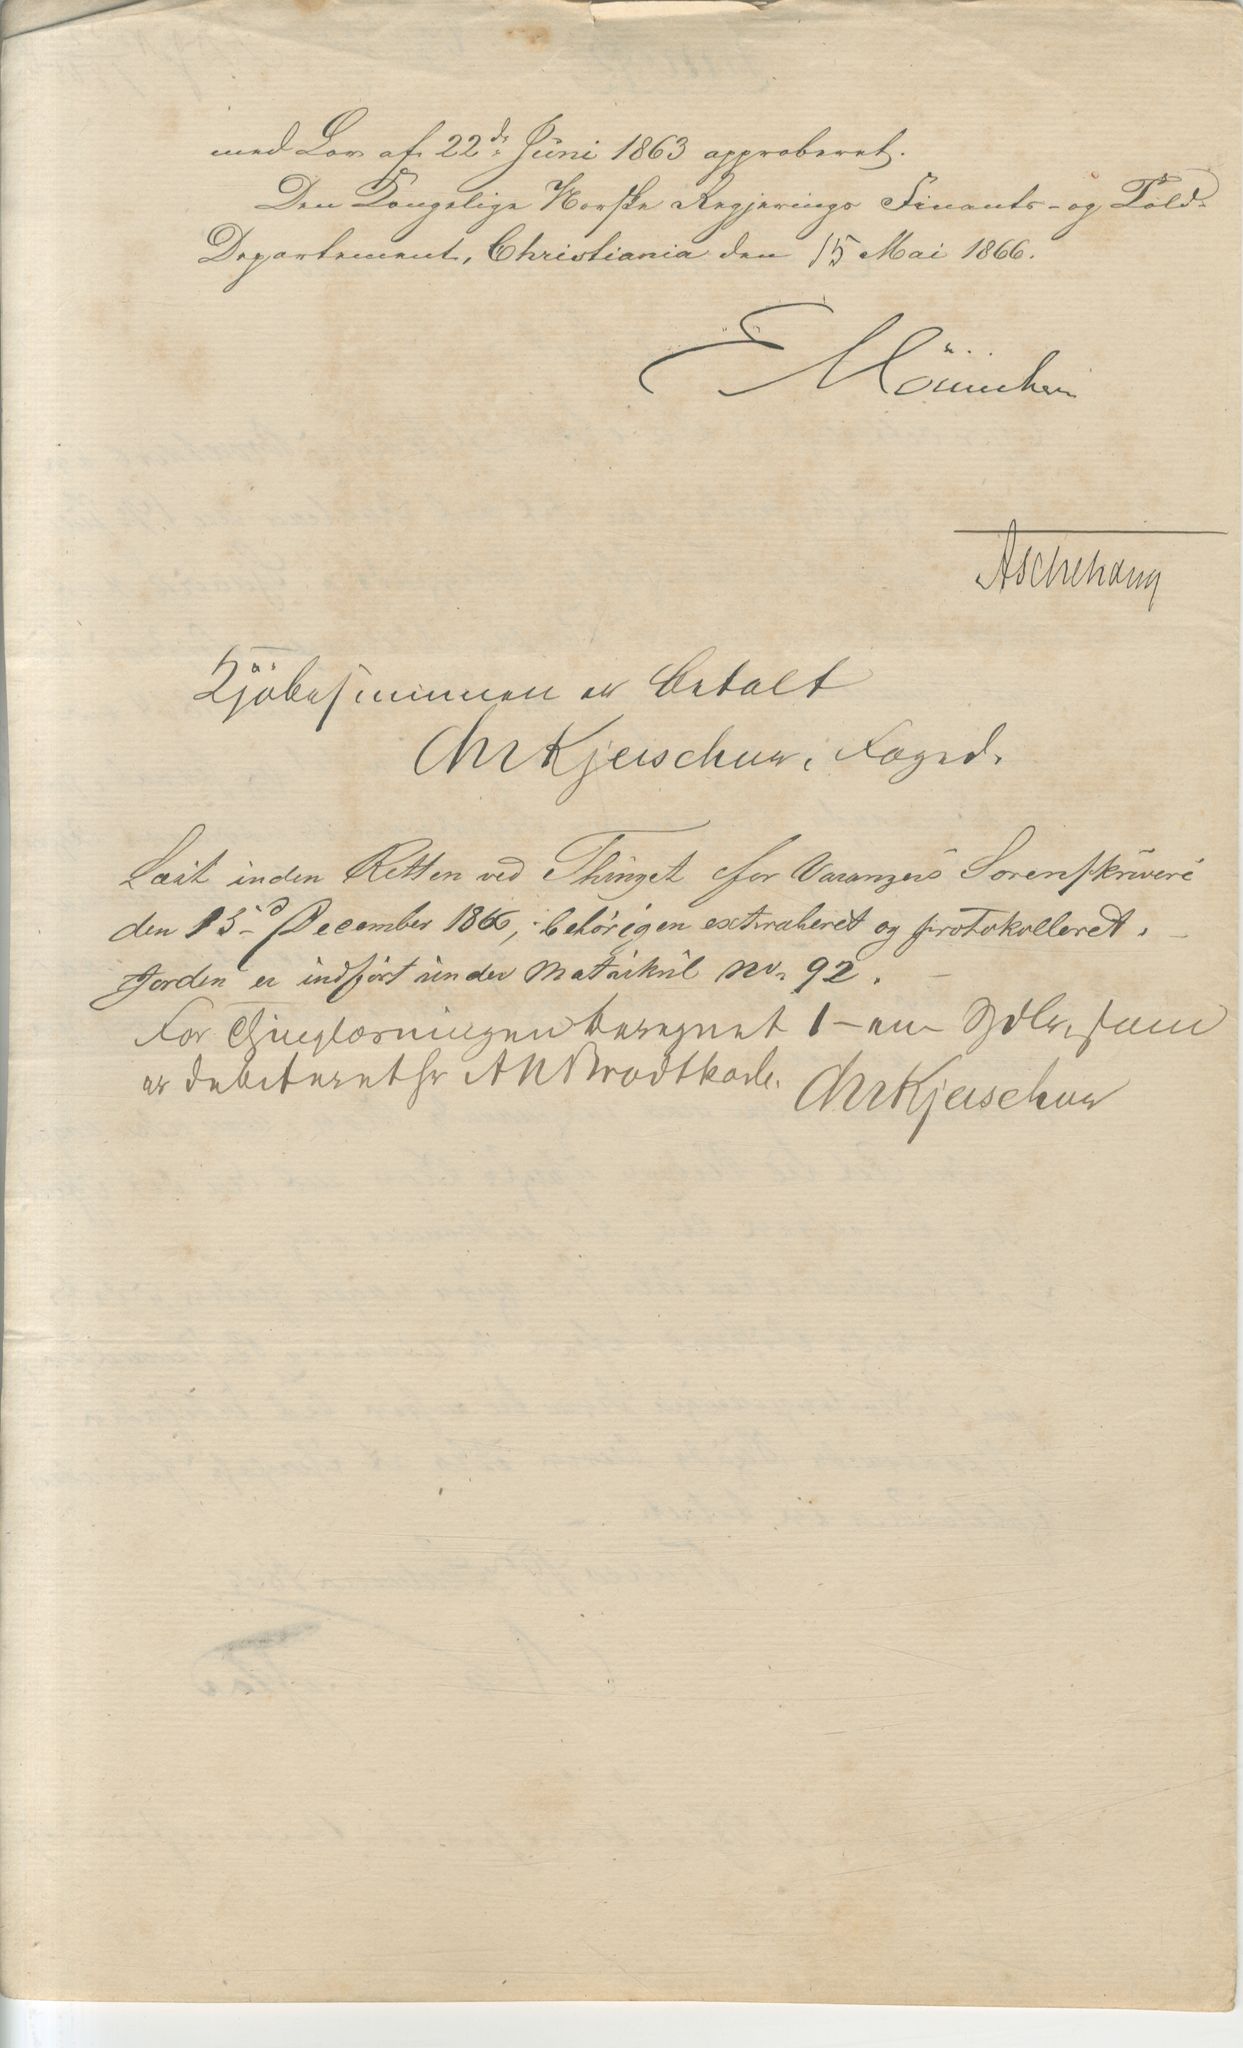 med Lov af 22de Juni 1863 approberet.
Den Kongelige Norske Regjerings Finants- og Told-
Departement, Christiania den 15 Mai 1866.
Aschehoug
Kjöbesummen er betalt
Kjerschow, Foged.
Læst inden Retten ved Thinget for Varangers Sorenskriveri
den 15d December 1866, behörigen extraheret og protokolleret.
Jorden er indfört under Matrikul No 92.
For Thinglæsningen beregnet 1 - en Spdlr, som
er debiteret Hr A N Brodtkorb. Kjerschow